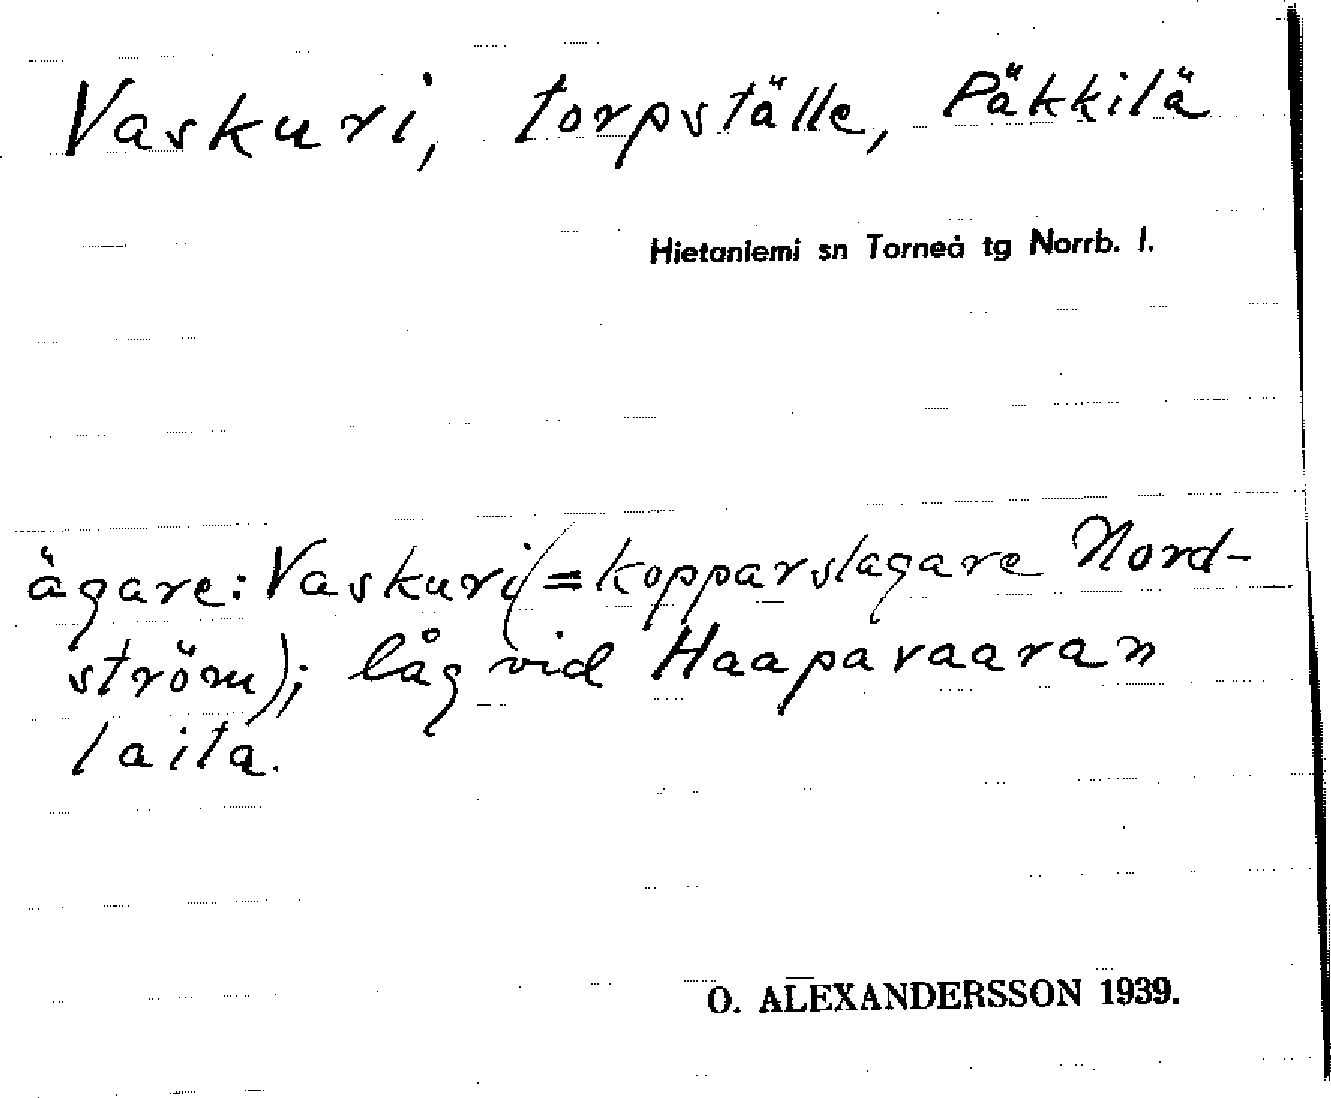 Vaskuri, torpställe, Päkkilä
Hietaniemi sn Torneå tg Norrb. l.
ägare: Vaskuri (= kopparslagare Nord-
ström); låg vid Haapavaaran
laita.
O. ALEXANDERSSON 1939.